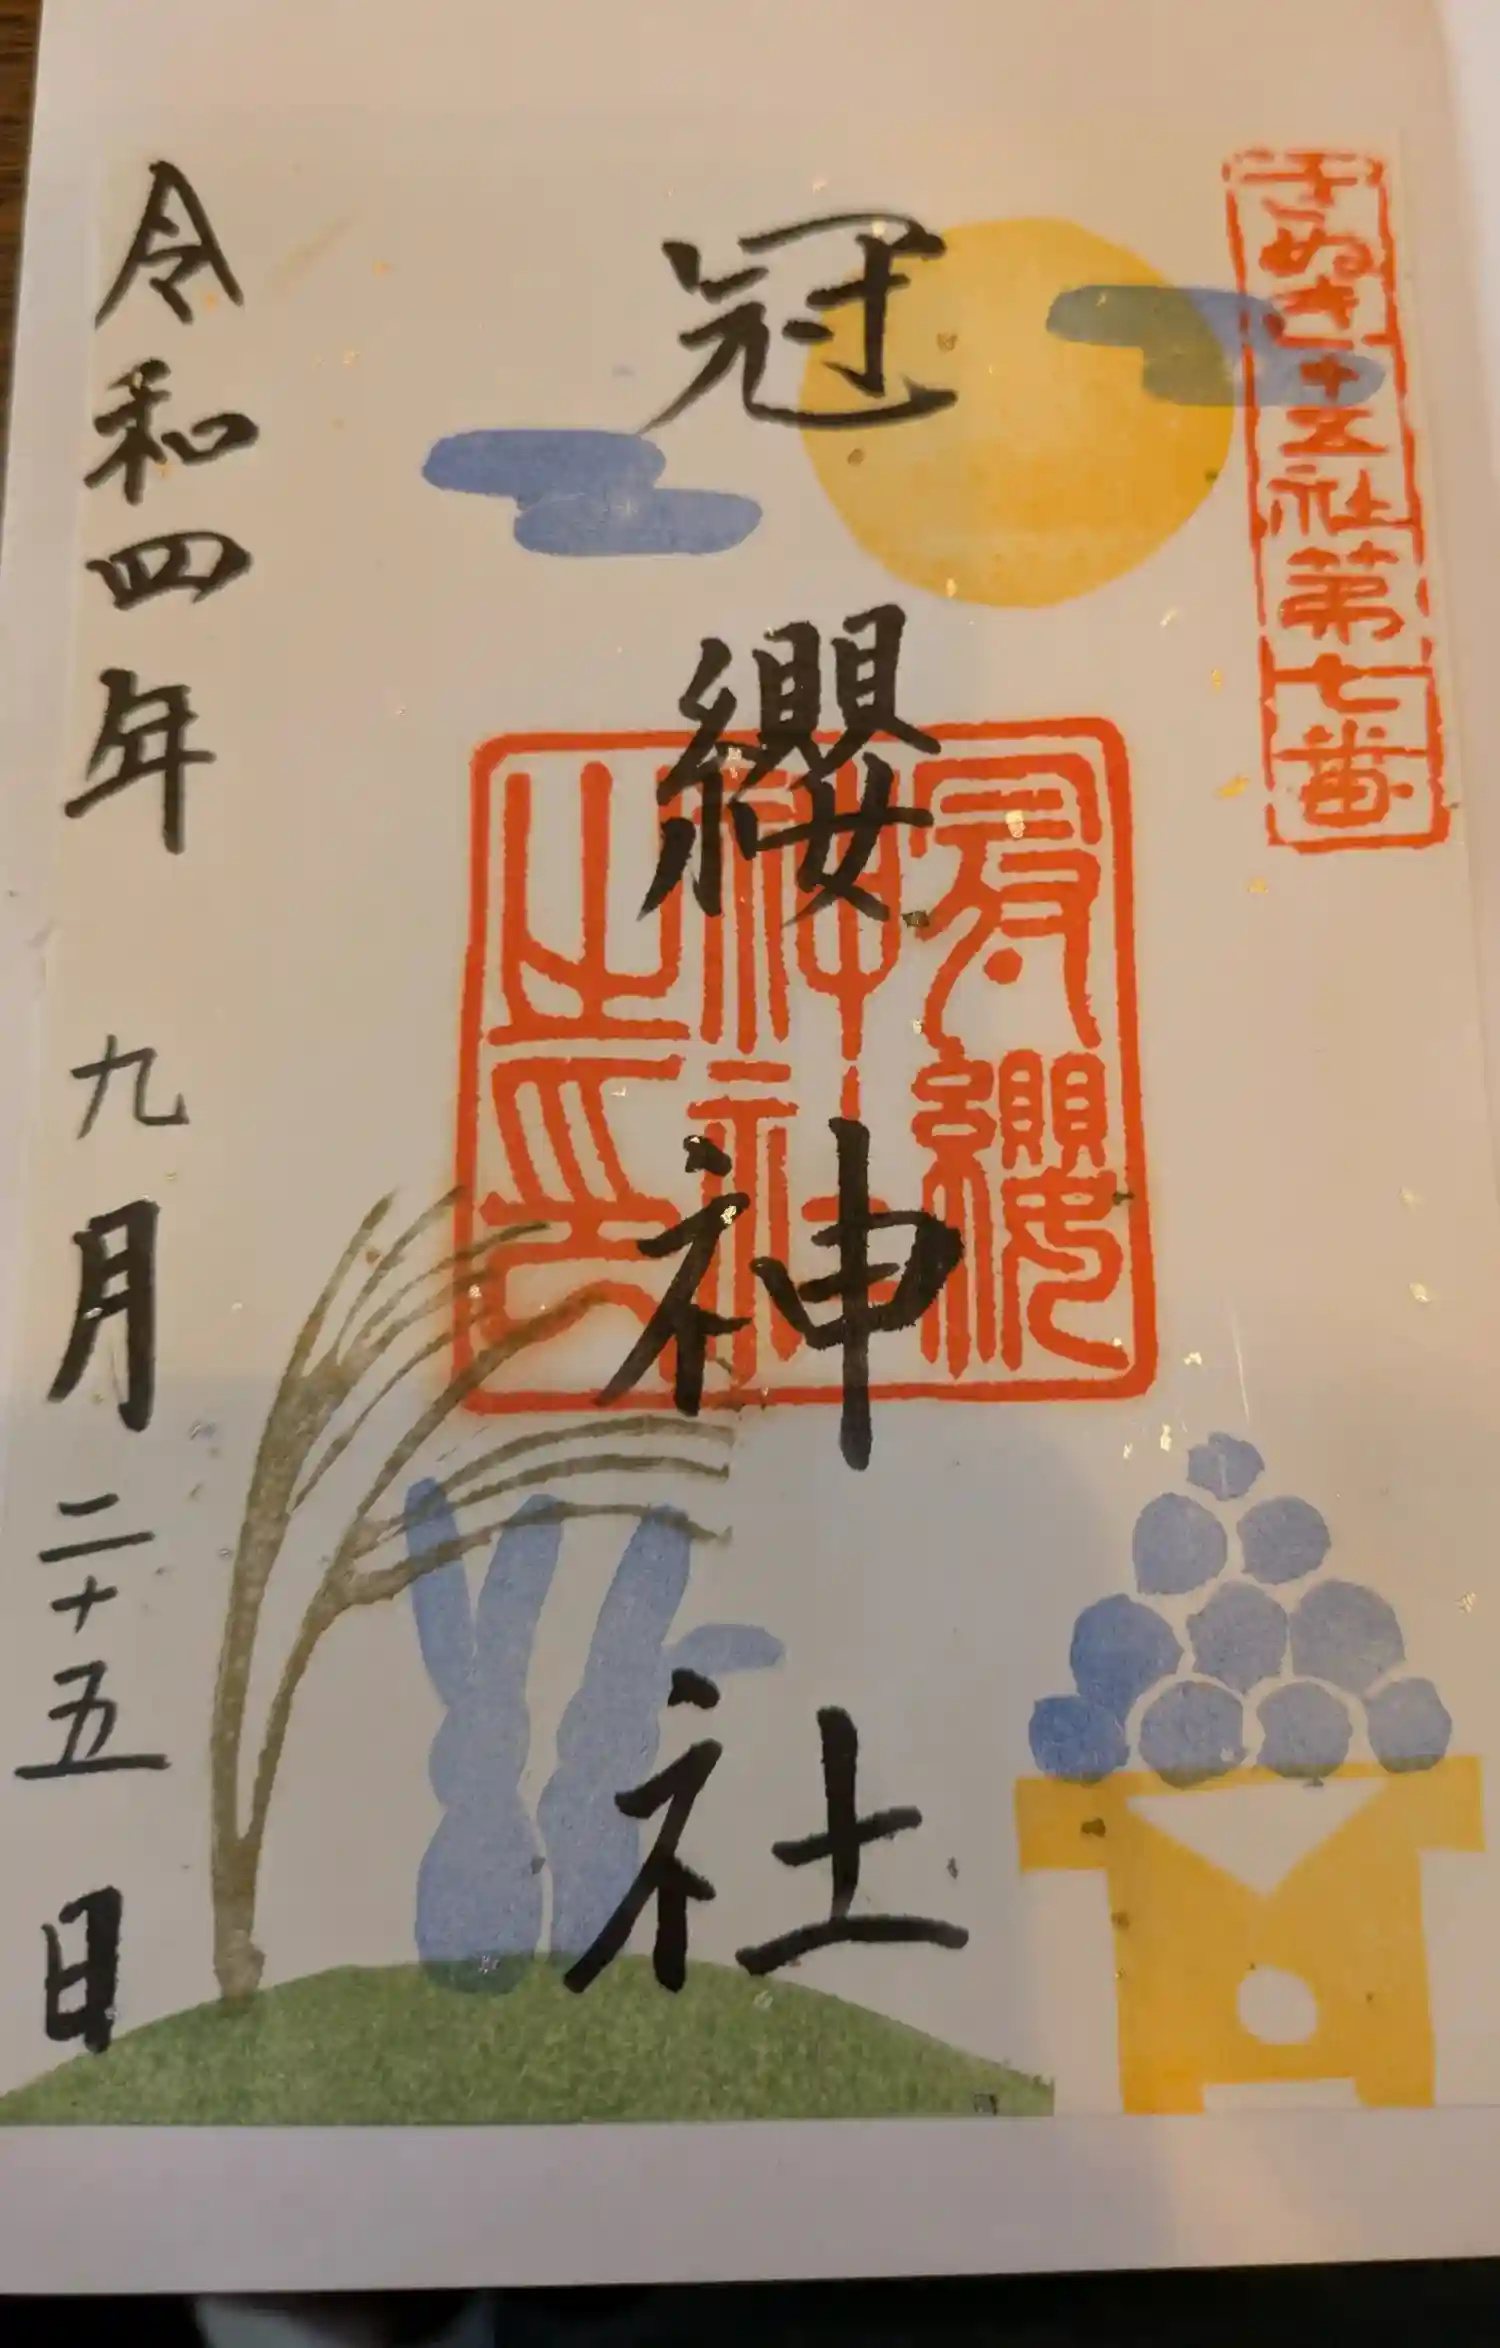 さぬき十五社第七番
冠纓神社
冠纓神社之印
令和四年九月二十五日